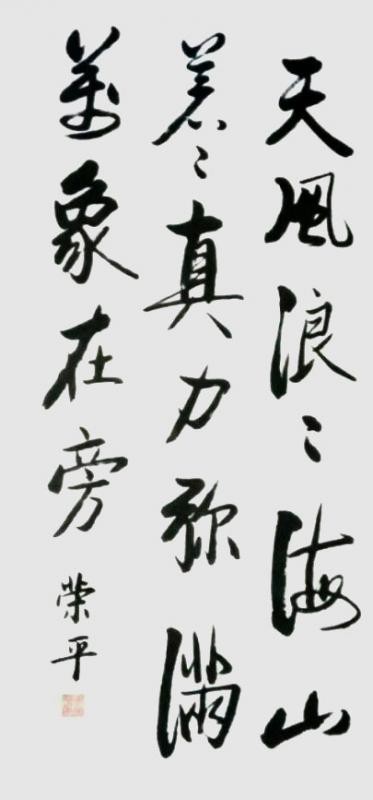 天風浪〻海山
蒼〻真力弥滿
萬象在旁
榮平